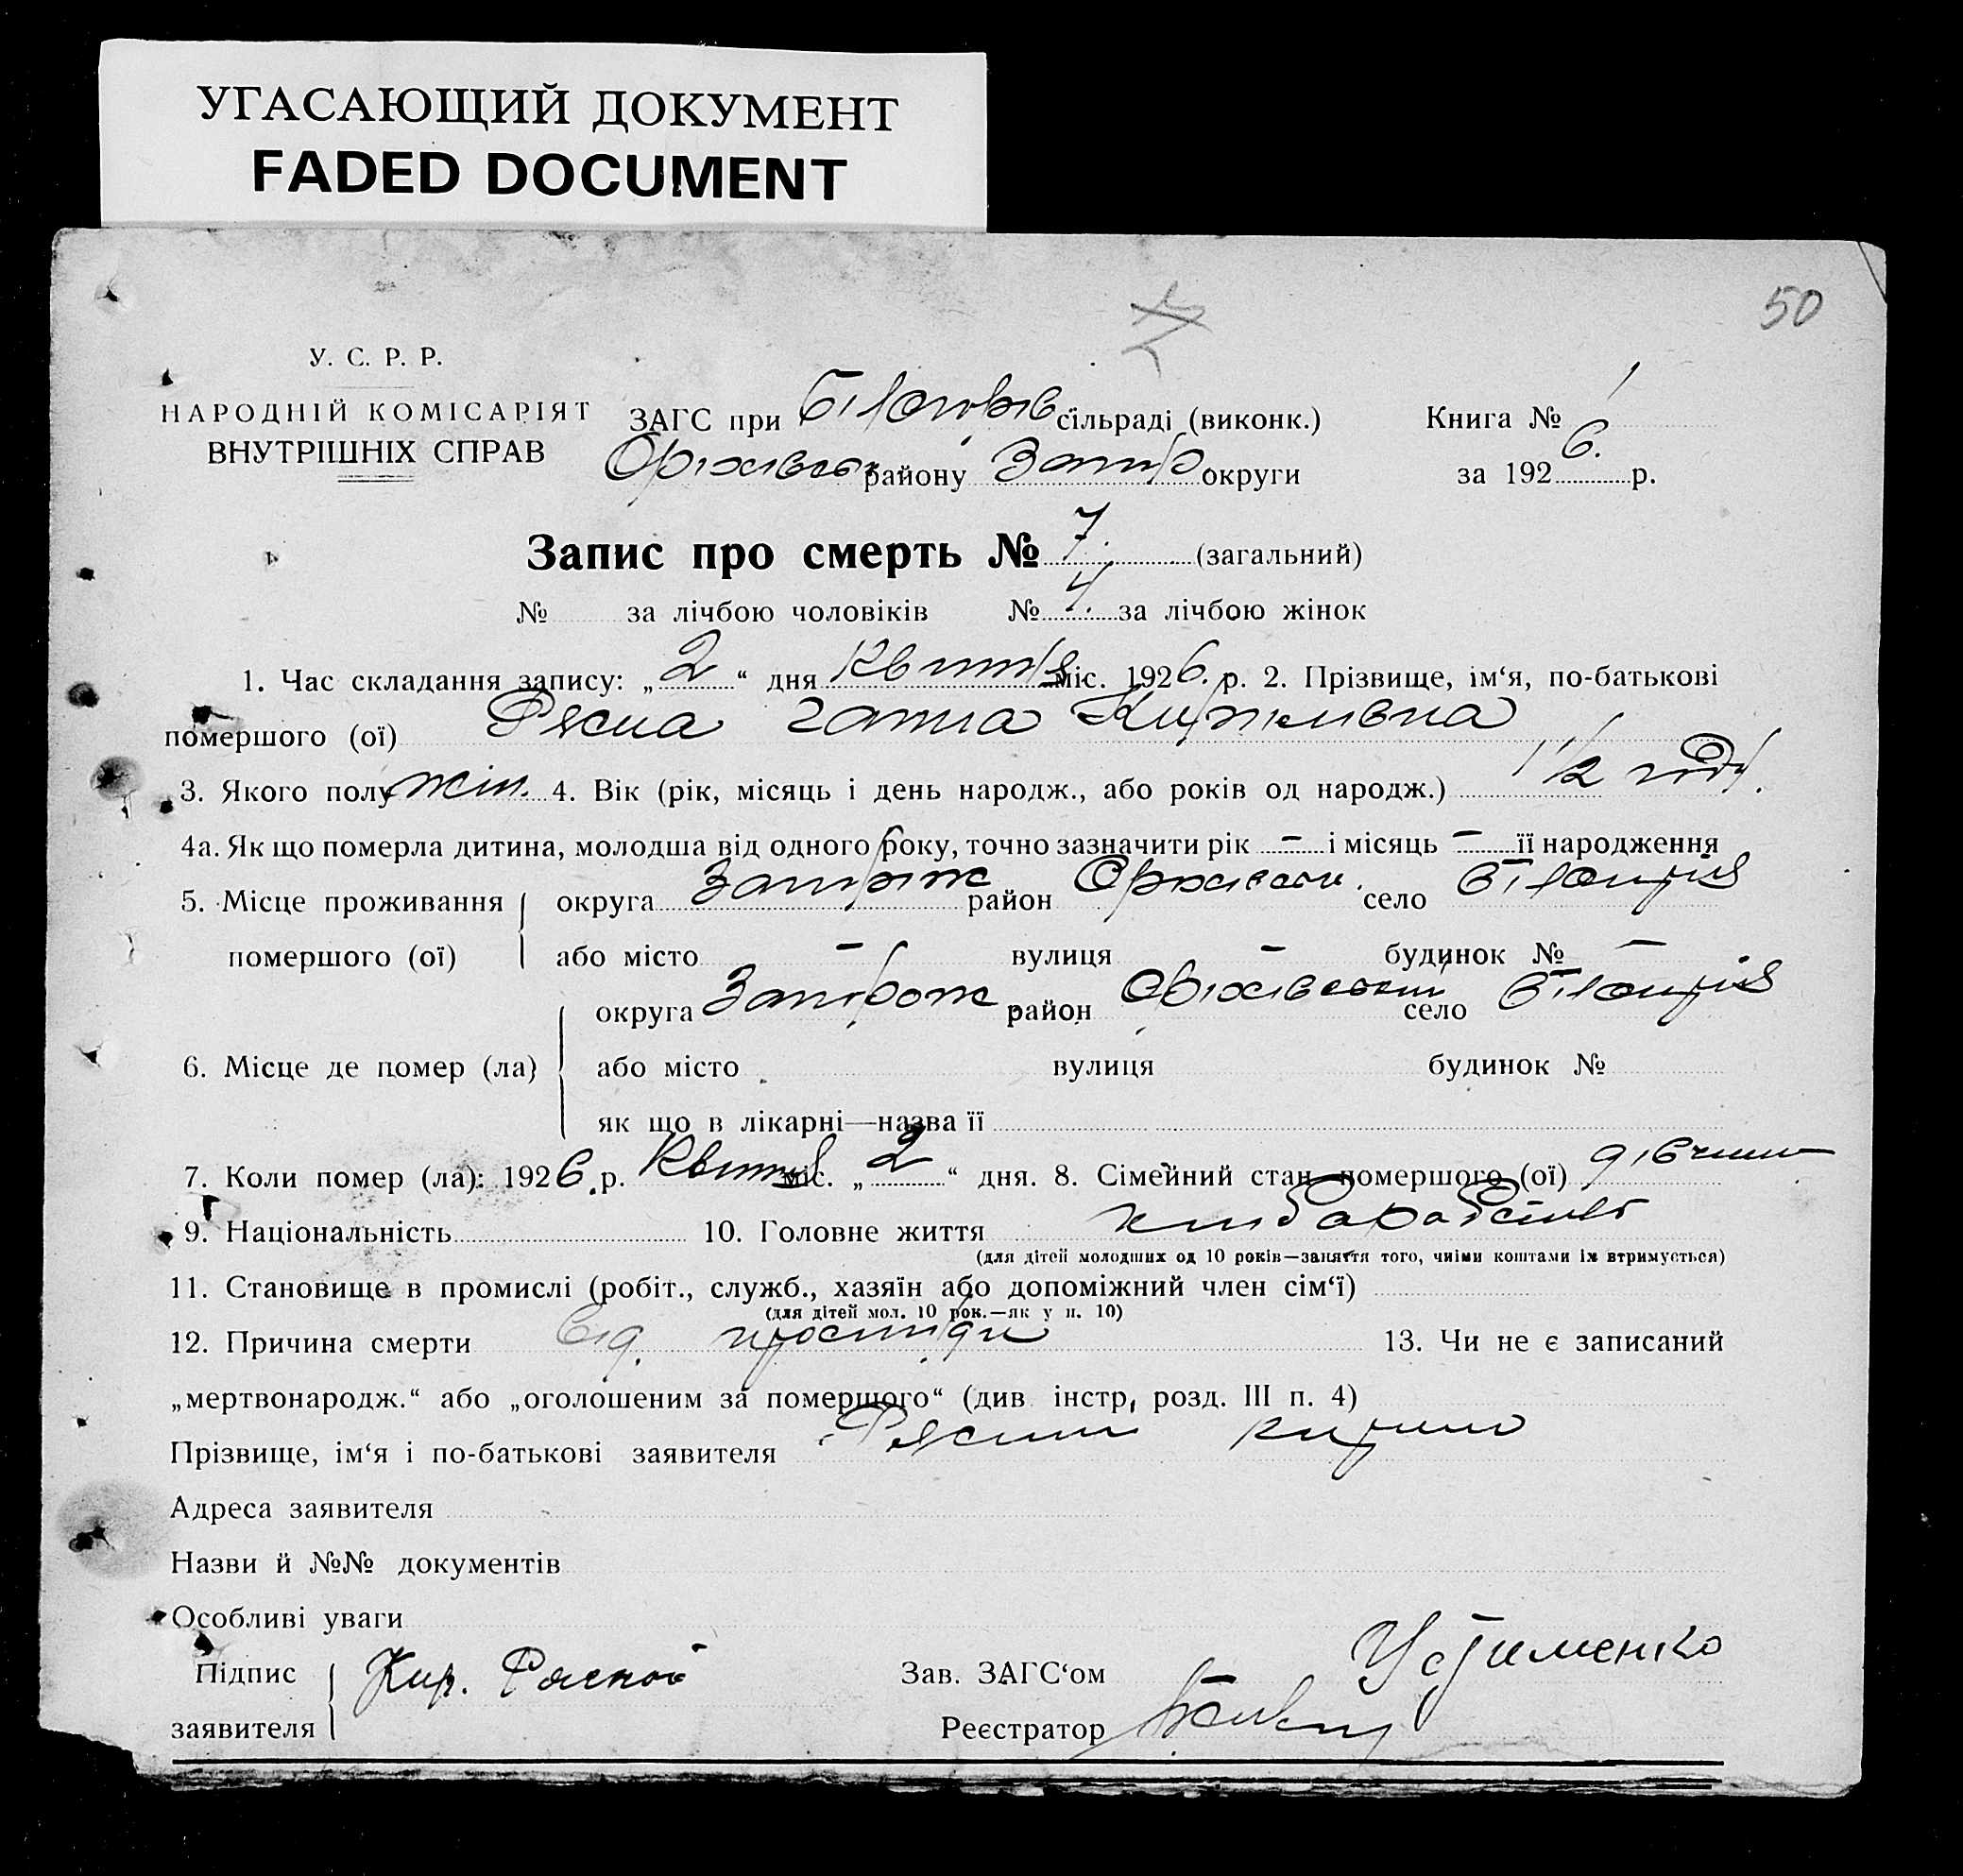 УГАСАЮЩИЙ ДОКУМЕНТ
FADED DOCUMENT
50
У. С. Р. Р.
НАРОДНІЙ КОМІСАРІЯТ
ВНУТРІШНІХ СПРАВ
ЗАГС при сільраді (виконк.)
Оріхівськ. району Запор. округи
Книга № 1
за 1926. р.
Запис про смерть № 7. (загальний)
№ за лічбою чоловіків № 4. за лічбою жінок
1. Час складання запису: „2“ дня Квітня міс. 1926. р. 2. Прізвище, ім‘я, по-батькові
помершого (ої) Рясна Ганна Кирилівна
3. Якого полу жін. 4. Вік (рік, місяць і день народж., або років од народж.) 1 1/2 году.
4а. Як що померла дитина, молодша від одного року, точно зазначити рік – і місяць – її народження
5. Місце проживання помершого (ої) округа Запоріж район Оріхівськ. село
або місто – вулиця – будинок № –
6. Місце де помер (ла) округа Запорож район Оріхівський село
або місто вулиця будинок №
як що в лікарні—назва її
7. Коли помер (ла): 1926. р. Квітня міс. „2“ дня. 8. Сімейний стан помершого (ої) дівчина
9. Національність 10. Головне життя хлібороб
(для дітей молодших од 10 років—заняття того, чиїми коштами їх втримується)
11. Становище в промислі (робіт., служб., хазяїн або допоміжний член сім‘ї)
(для дітей мол. 10 рок.—як у п. 10)
12. Причина смерти від простуди 13. Чи не є записаний
„мертвонародж.“ або „оголошеним за помершого“ (див. інстр, розд. III п. 4)
Прізвище, ім‘я і по-батькові заявителя Рясний Кирило
Адреса заявителя
Назви й №№ документів
Особливі уваги
Підпис заявителя Кир. Расной
Зав. ЗАГС‘ом Устименко
Реєстратор